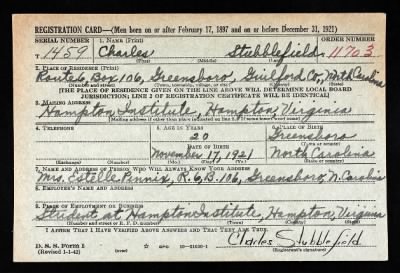 REGISTRATION CARD—(Men born on or after February 17, 1897 and on or before December 31, 1921)
SERIAL NUMBER 1. NAME (Print) ORDER NUMBER
T 1459 Charles Stubblefield 11703
(First) (Middle) (Last)
2. PLACE OF RESIDENCE (Print)
Route 6 Box 106, Greensboro, Guilford Co, North Carolina
(Number and street) (Town, township, village, or city) (County) (State)
[THE PLACE OF RESIDENCE GIVEN ON THE LINE ABOVE WILL DETERMINE LOCAL BOARD
JURISDICTION; LINE 2 OF REGISTRATION CERTIFICATE WILL BE IDENTICAL]
3. MAILING ADDRESS
Hampton Institute, Hampton, Virginia
[Mailing address if other than place indicated on line 2. If same insert word same]
4. TELEPHONE 5. AGE IN YEARS 6. PLACE OF BIRTH
20 Greensboro
DATE OF BIRTH (Town or county)
November 17, 1921 North Carolina
(Exchange) (Number) (Mo.) (Day) (Yr.) (State or country)
7. NAME AND ADDRESS OF PERSON WHO WILL ALWAYS KNOW YOUR ADDRESS
Mrs. Estelle Pennix, R.6, B.106, Greensboro, N. Carolina
8. EMPLOYER'S NAME AND ADDRESS
9. PLACE OF EMPLOYMENT OR BUSINESS
Student at Hampton Institute, Hampton, Virginia
(Number and street or R. F. D. number) (Town) (County) (State)
I AFFIRM THAT I HAVE VERIFIED ABOVE ANSWERS AND THAT THEY ARE TRUE.
D. S. S. Form 1
(Revised 1-1-42) GPO 16—21630-1 Charles Stubblefield
(Registrant's signature)